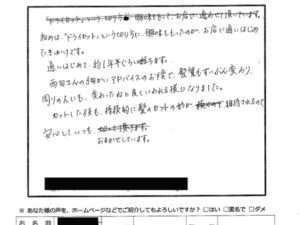 「ドライカット」という切り方に興味をもって、お店に通わせて頂いています。
私は、"ドライカット"という切り方に、興味をもったのが、お店に通いはじめ
たきっかけです。
通いはじめて、約1年半ぐらい経ちます。
西田さんの細かいアドバイスのお陰で、髪質もずいぶん変わり、
周りの人にも、変わったねと良くいわれる様になりました。
カットした後も、持続的に髪のセットの形が、維持されるので
安心していつも、
おまかせしています。
※ あなた様の声を、ホームページなどでご紹介してもよろしいですか? □はい □匿名で □ダメ
お名前